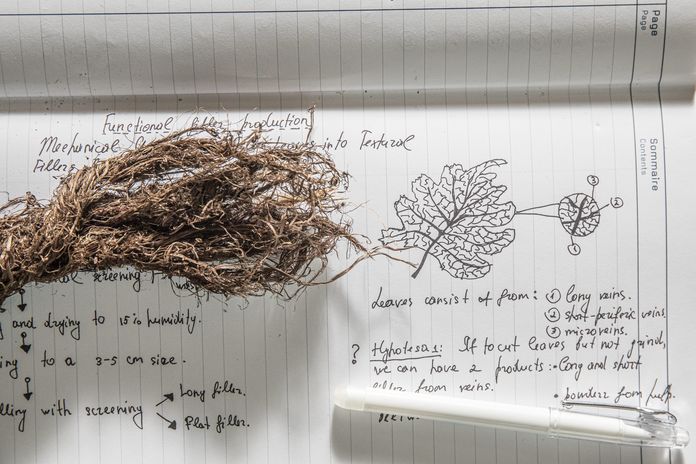 Page
Page
Sommaire
Contents
Functional filler production
Mechanical into Textural
Fillers
screening
and drying to 15% humidity.
to a 3-5 cm size.
with screening
Long filler.
Flat filler.
③
②
①
Leaves consist of from: ① long veins.
② short-periferic veins.
③ microveins.
? Hypotesis: If to cut leaves but not grind,
we can have 2 products: • Long and short
filler from veins.
• powder from pulp.